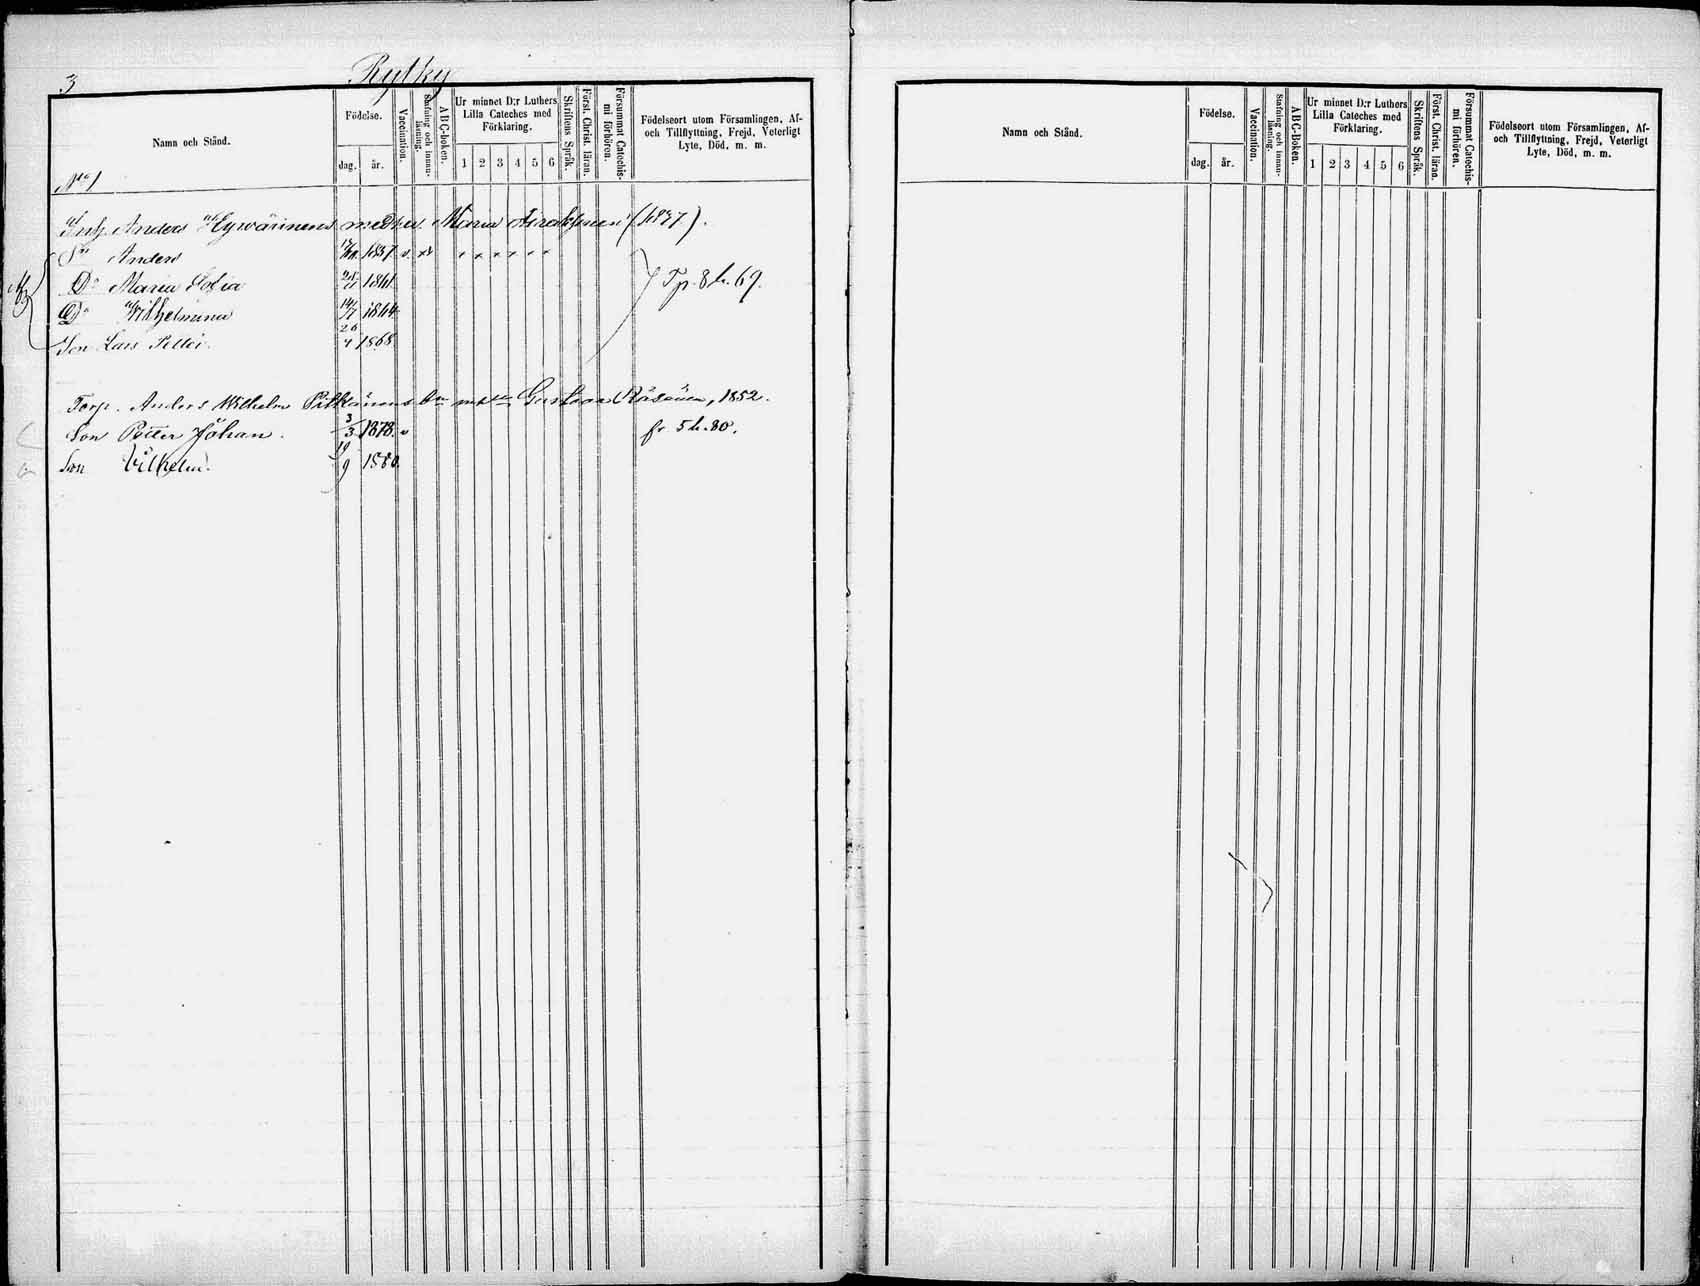 3
Rytky
Namn och Stånd.
Födelse.
dag.
år.
Vaccination.
Stafning och innan-läsning.
ABC-boken.
Ur minnet D:r Luthers
Lilla Cateches med
Förklaring.
1 2 3 4 5 6
Skriftens Språk.
Först. Christ. läran.
Försummat Catechis-
mi förhören.
Födelseort utom Församlingen, Af-
och Tillflyttning, Frejd, Veterligt
Lyte, Död, m. m.
No 1
Inh. Anders Hyvärinens med hu Maria (1837).
Sn Anders 1857 v. x x x x x x
Do Maria Sofia 1861 Tp. 8 h. 69.
Do Wilhelmina 14/7 1864
Son Lars Petter 26 1868
Torp. Anders Wilhelm Pitkänens Gustava Räsänen, 1852.
Son Petter Johan. 3/3 1878. v fr 5 h. 80.
Son Vilhelm. 19/9 1880.
Namn och Stånd.
Födelse.
dag.
år.
Vaccination.
Stafning och innan-läsning.
ABC-boken.
Ur minnet D:r Luthers
Lilla Cateches med
Förklaring.
1 2 3 4 5 6
Skriftens Språk.
Först. Christ. läran.
Försummat Catechis-
mi förhören.
Födelseort utom Församlingen, Af-
och Tillflyttning, Frejd, Veterligt
Lyte, Död, m. m.